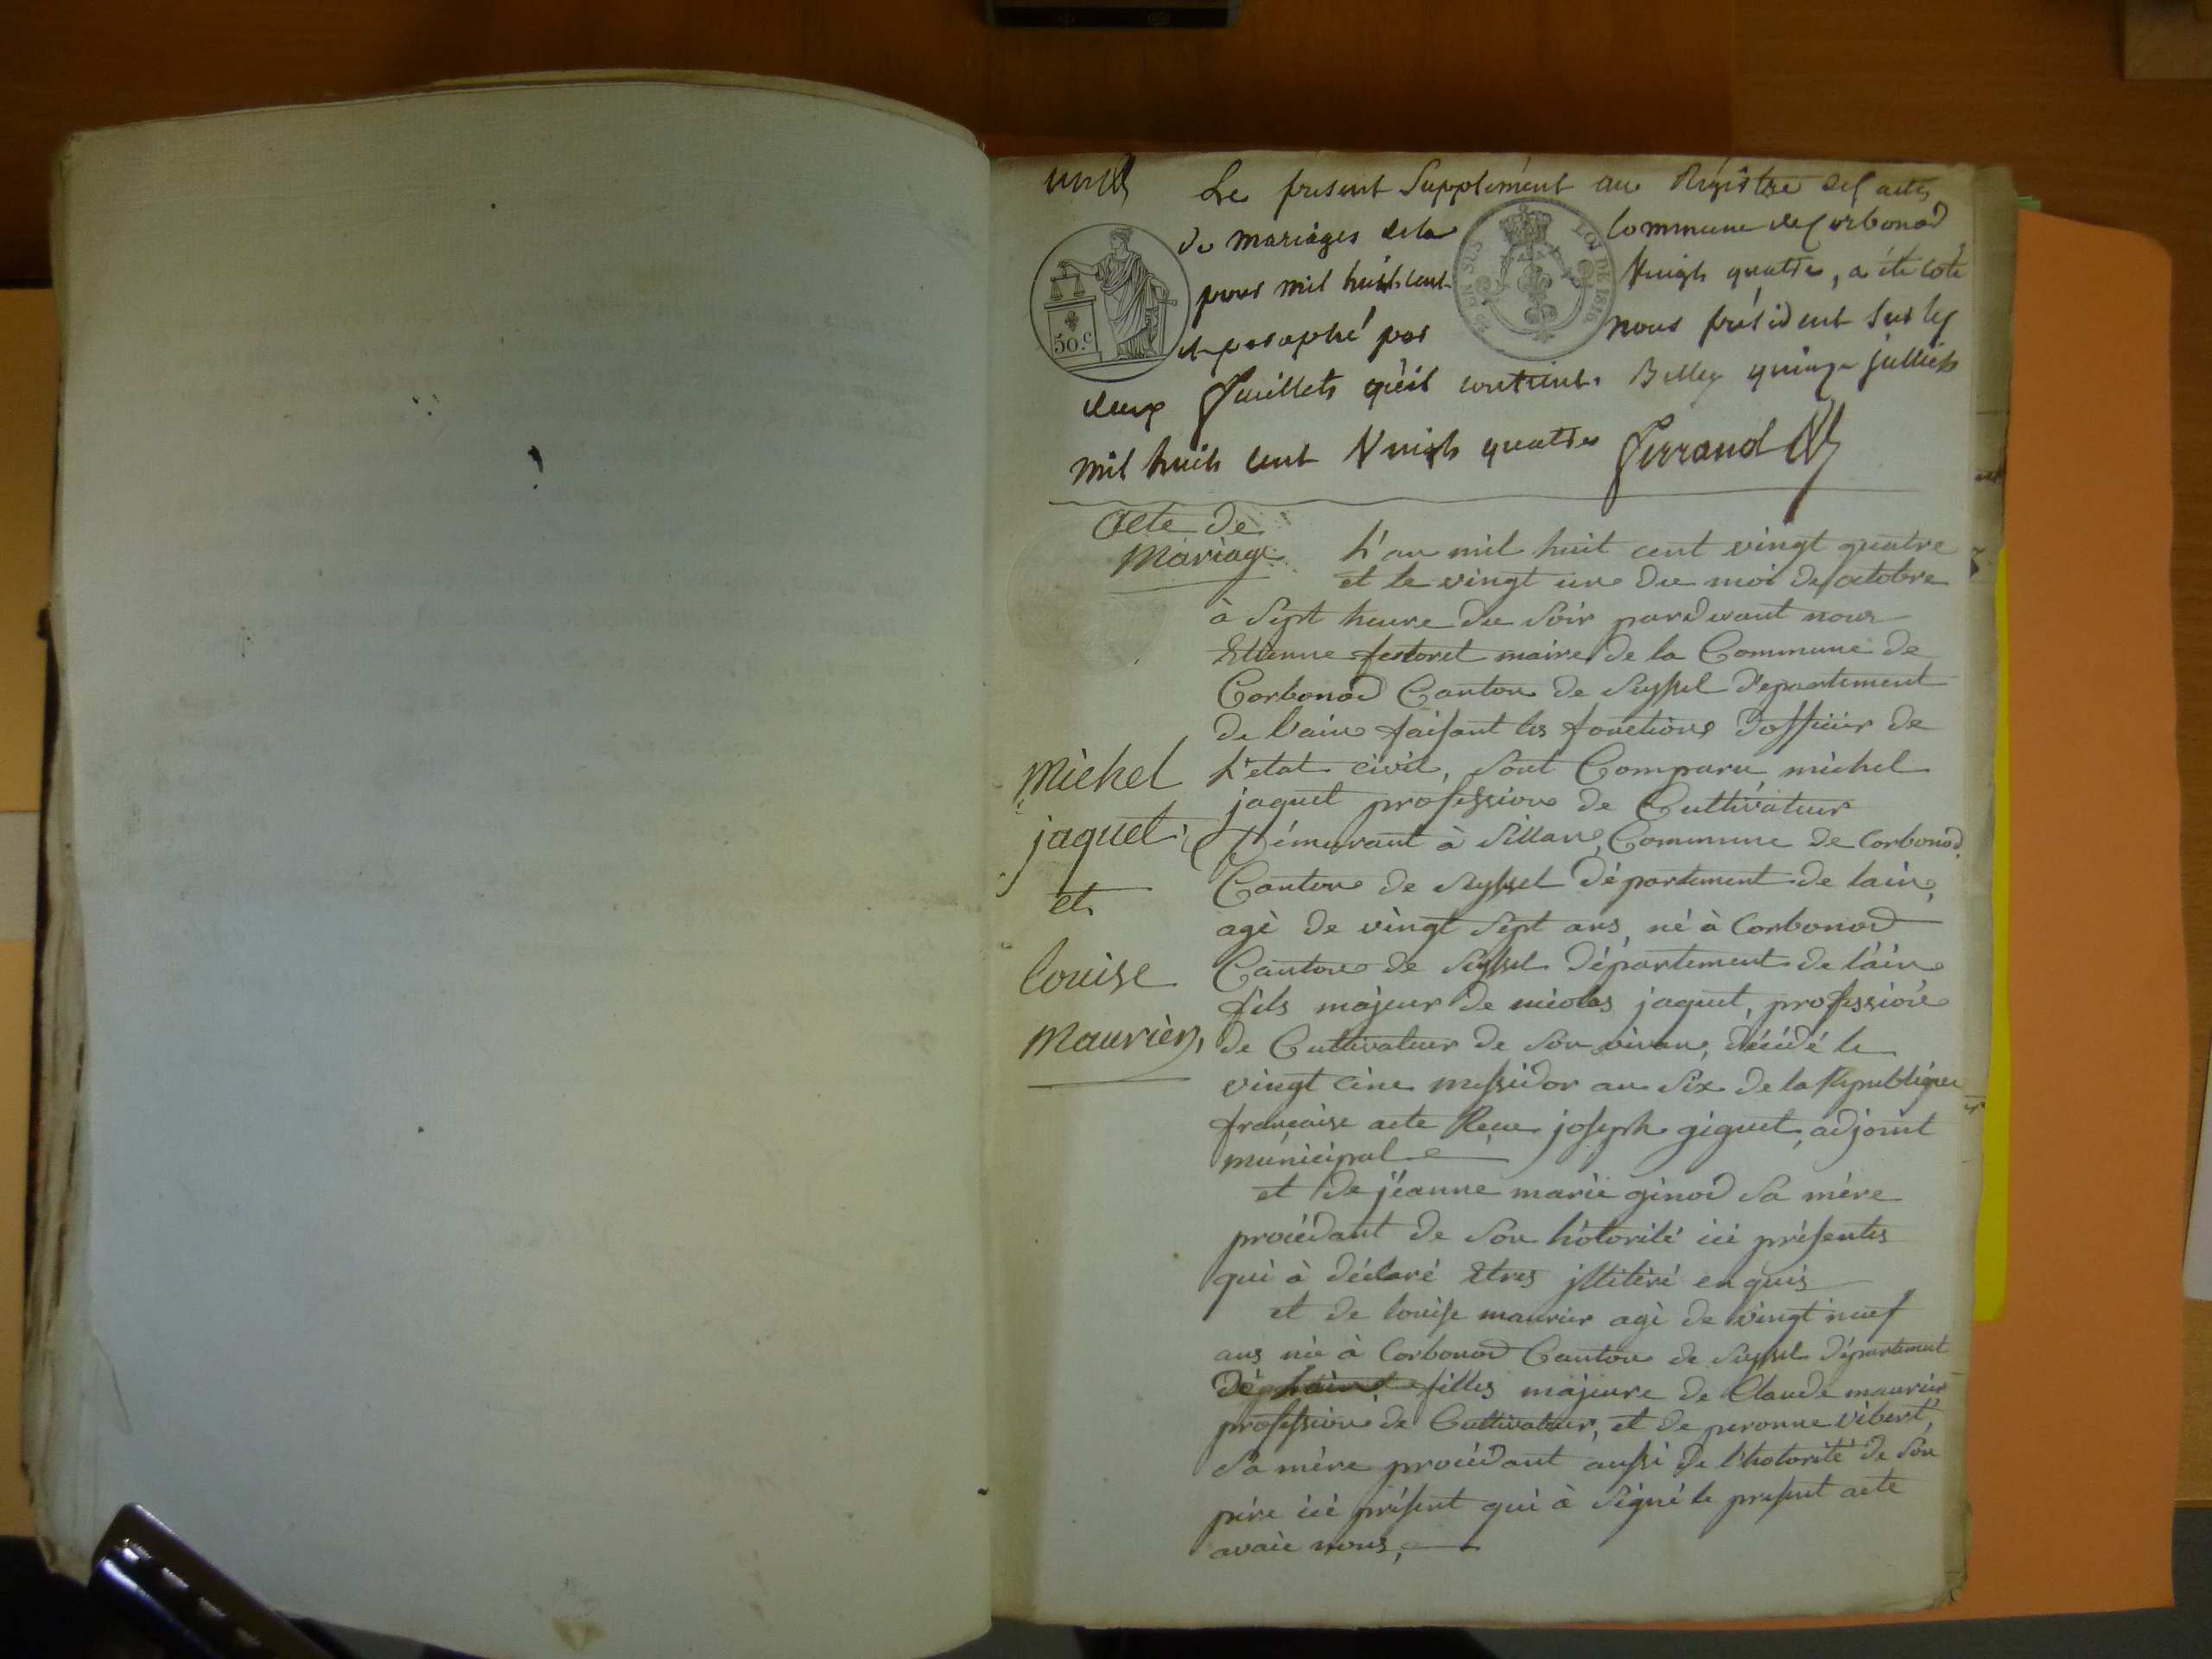 Le present Supplément au Régistre des actes
de mariages de la Commune de Corbonod
pour mil huit cent Vingt quatre, a été coté
et paraphé par nous président sur les
deux feuillets qu'il contient. Belley quinze juillet
mil huit cent Vingt quatre Ferrand
50.c
LOI DE 1816
EN SUS
Acte de
Mariage
Michel
jaquet
et
louise
Maurier,
L'an mil huit cent vingt quatre
et le vingt un du moi de octobre
à Sept heure du Soir pardevant nous
Etienne festoret maire de la Commune de
Corbonod Canton de Seyssel Département
de l'ain faisant les fonctions d'officier de
l'etat civil, Sont Comparu michel
jaquet profession de Cultivateur
Démurant à Sillan, Commune de Corbonod
Canton de Seyssel Département de lain,
agé de vingt Sept ans, né à Corbonod
Canton de Seyssel Département de l'ain
fils majeur de nicolas jaquet, profession
de Cultivateur de Son vivan, décédé le
vingt cinc messidor an Six de la Republique
française acte Reçu joseph giguet, adjoint
municipal
et de jéanne marie ginod Sa mère
procédant de Son hotorité ici présentes
qui à déclaré Etres jlitéré enquis
et de louise maurier agé de vingt neuf
ans née à Corbonod Canton de Seyssel Département
de lain filles majeure de Claude maurier
profession de Cultivateur, et de peronne vibert,
Sa mère procédant aussi de l'hotorité de Son
père ici présent qui à Signé le present acte
avaic nous,